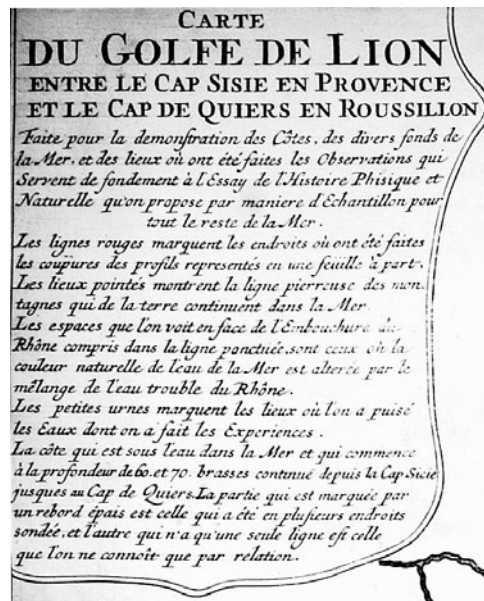 CARTE
DU GOLFE DE LION
ENTRE LE CAP SISIE EN PROVENCE
ET LE CAP DE QUIERS EN ROUSSILLON
Faite pour la demonſtration des Côtes, des divers fonds de
la Mer, et des lieux où ont été faites les Observations qui
Servent de fondement à l'Essay de l'Histoire Phisique et
Naturelle qu'on propose par maniere d'Echantillon pour
tout le reste de la Mer.
Les lignes rouges marquent les endroits où ont été faites
les coupures des profils representés en une feuille à part.
Les lieux pointés montrent la ligne pierreuse des mon-
tagnes qui de la terre continuent dans la Mer.
Les espaces que l'on voit en face de l'Embouchure du
Rhône compris dans la ligne ponctuée, sont ceux où la
couleur naturelle de l'eau de la Mer est alterée par le
mêlange de l'eau trouble du Rhône.
Les petites urnes marquent les lieux où l'on a puisé
les Eaux dont on a fait les Experiences.
La côte qui est sous l'eau dans la Mer et qui commence
à la profondeur de 60. et 70. brasses continuë depuis la Cap Sicie
jusques au Cap de Quiers. La partie qui est marquée par
un rebord épais est celle qui a été en pluſieurs endroits
sondée, et l'autre qui n'a qu'une seule ligne eſt celle
que l'on ne connoît que par relation.